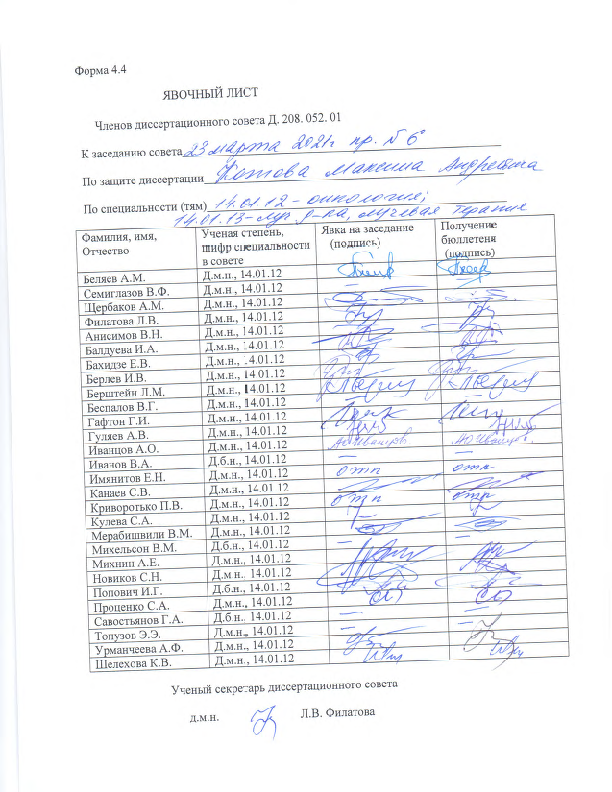 Форма 4.4
ЯВОЧНЫЙ ЛИСТ
Членов диссертационного совета Д. 208. 052. 01
К заседанию совета 23 марта 2021г пр. № 6
По защите диссертации Котова Максима Андреевича
По специальности (тям) 14.01.12 - онкология;
14.01.13 - луч. д-ка, лучевая терапия
Фамилия, имя, Отчество | Ученая степень, шифр специальности в совете | Явка на заседание (подпись) | Получение бюллетеня (подпись)
Беляев А.М. Д.м.н., 14.01.12
Семиглазов В.Ф. Д.м.н., 14.01.12
Щербаков А.М. Д.м.н., 14.01.12
Филатова Л.В. Д.м.н., 14.01.12
Анисимов В.Н. Д.м.н., 14.01.12
Балдуева И.А. Д.м.н., 14.01.12
Бахидзе Е.В. Д.м.н., 14.01.12
Берлев И.В. Д.м.н., 14.01.12
Берштейн Л.М. Д.м.н., 14.01.12
Беспалов В.Г. Д.м.н., 14.01.12
Гафтон Г.И. Д.м.н., 14.01.12
Гуляев А.В. Д.м.н., 14.01.12
Иванцов А.О. Д.м.н., 14.01.12 АО Иванцов АО Иванцов.
Иванов В.А. Д.б.н., 14.01.12
Имянитов Е.Н. Д.м.н., 14.01.12 отп отп
Канаев С.В. Д.м.н., 14.01.12
Криворотько П.В. Д.м.н., 14.01.12 отп отр
Кулева С.А. Д.м.н., 14.01.12
Мерабишвили В.М. Д.м.н., 14.01.12
Михельсон В.М. Д.б.н., 14.01.12
Михнин А.Е. Д.м.н., 14.01.12
Новиков С.Н. Д.м.н., 14.01.12
Попович И.Г. Д.б.н., 14.01.12
Проценко С.А. Д.м.н., 14.01.12
Савостьянов Г.А. Д.б.н., 14.01.12
Топузов Э.Э. Д.м.н., 14.01.12
Урманчеева А.Ф. Д.м.н., 14.01.12
Шелехова К.В. Д.м.н., 14.01.12
Ученый секретарь диссертационного совета
д.м.н. Л.В. Филатова